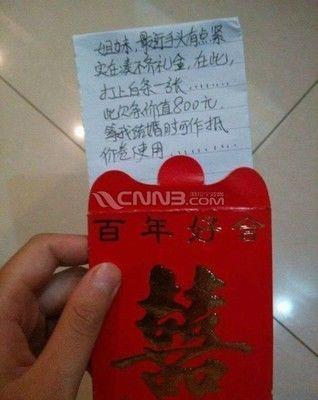 姐妹，最近手头有点紧
实在凑不齐礼金，在此，
打上白条一张.........
此欠条价值800元，
等我结婚时可作抵
价卷使用.........
CNN3.com
百年好合
囍